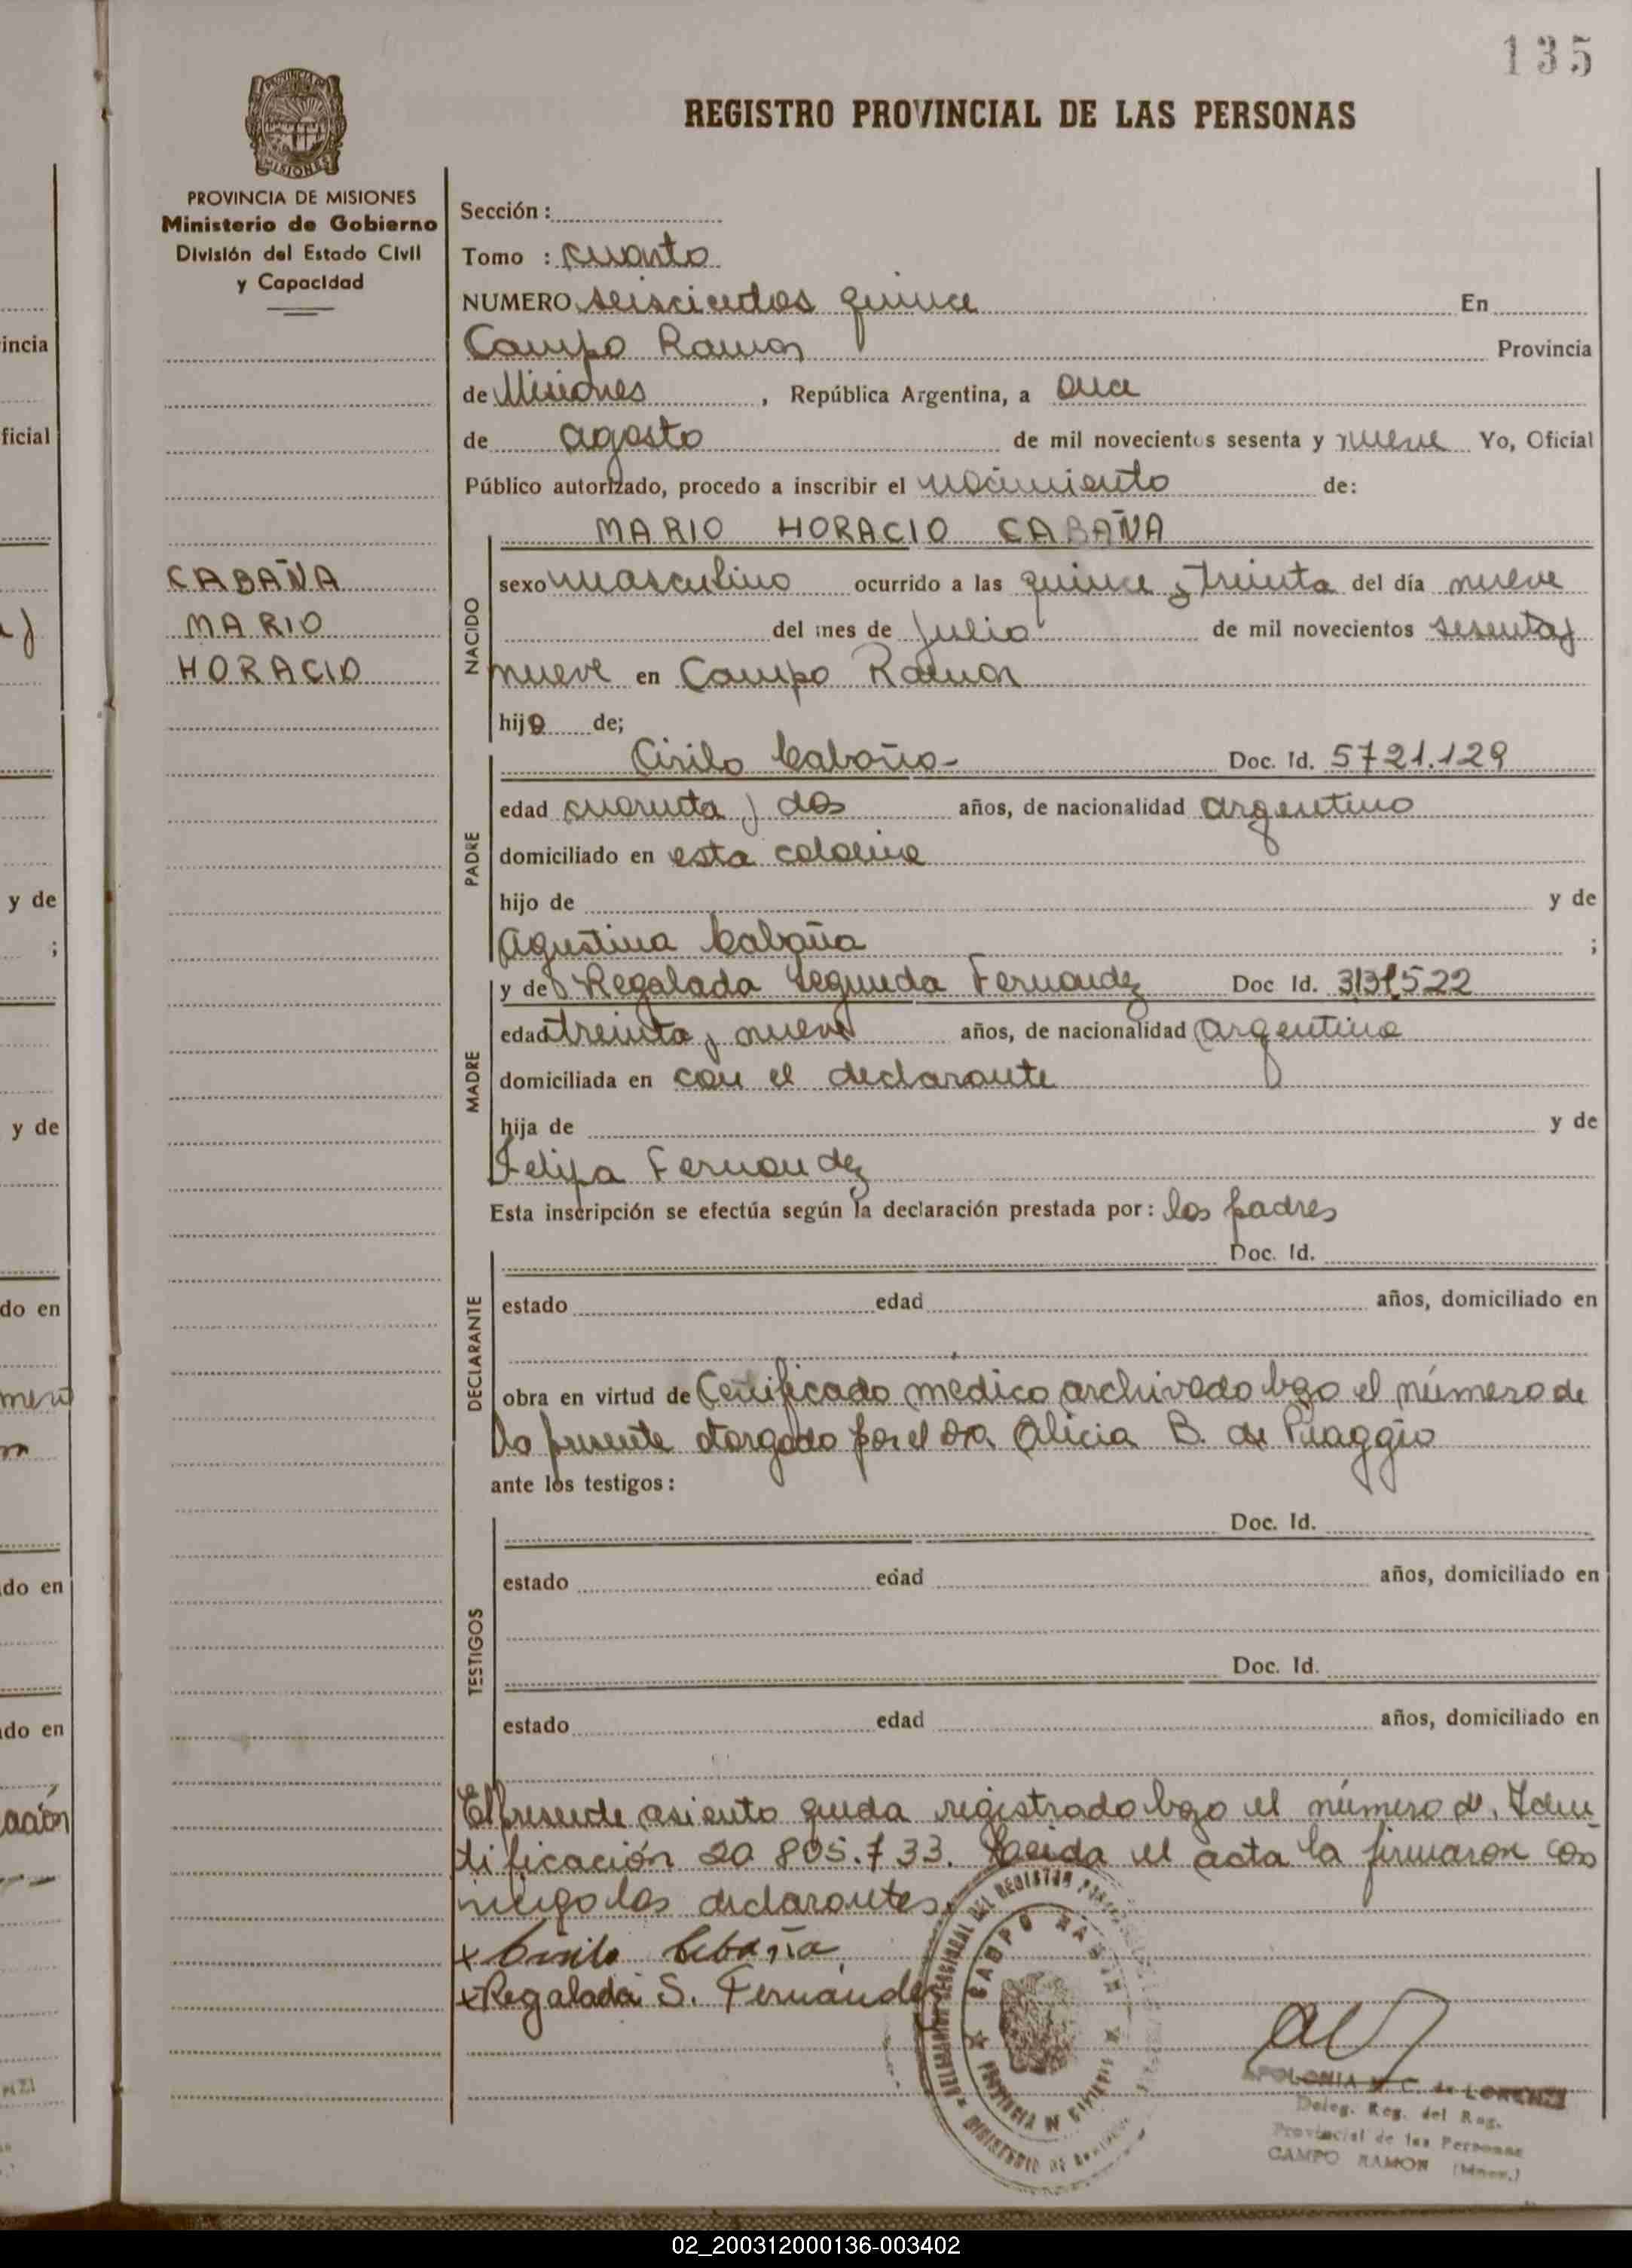 135
REGISTRO PROVINCIAL DE LAS PERSONAS
PROVINCIA DE MISIONES
Ministerio de Gobierno
División del Estado Civil
y Capacidad
CABAÑA
MARIO
HORACIO
Sección :
Tomo : cuarto
NUMERO seiscientos quince En
Campo Ramon Provincia
de Misiones , República Argentina, a once
de agosto de mil novecientos sesenta y nueve Yo, Oficial
Público autorizado, procedo a inscribir el nacimiento de:
MARIO HORACIO CABAÑA
NACIDO
sexo masculino ocurrido a las quince y treinta del día nueve
del mes de Julio de mil novecientos sesenta y
nueve en Campo Ramon
hijo de;
PADRE
Cirilo Cabaña Doc. Id. 5721.129
edad cuarenta y dos años, de nacionalidad argentino
domiciliado en esta colonia
hijo de y de
Agustina Cabaña ;
MADRE
y de Regalada Segunda Fernandez Doc Id.
edad treinta y nueve años, de nacionalidad argentina
domiciliada en con el declarante
hija de y de
Felipa Fernandez
Esta inscripción se efectúa según la declaración prestada por: los padres
DECLARANTE
Doc. Id.
estado edad años, domiciliado en
obra en virtud de Certificado medico archivado bajo el número de
la presente otorgado por el dra Alicia B. de Piaggio
ante los testigos:
TESTIGOS
Doc. Id.
estado edad años, domiciliado en
Doc. Id.
estado edad años, domiciliado en
El presente asiento queda registrado bajo el número d. Iden
tificación 20 805.733. Leida el acta la firmaron con
migo los declarantes.
x Cirilo Cabaña
x Regalada S. Fernandez
CAMPO RAMON
APOLONIA M. C. de LORENZI
Deleg. Reg. del Reg.
Provincial de las Personas
CAMPO RAMON (Mnes.)
incia
ficial
y de
;
y de
do en
do en
do en
ación
02_200312000136-003402